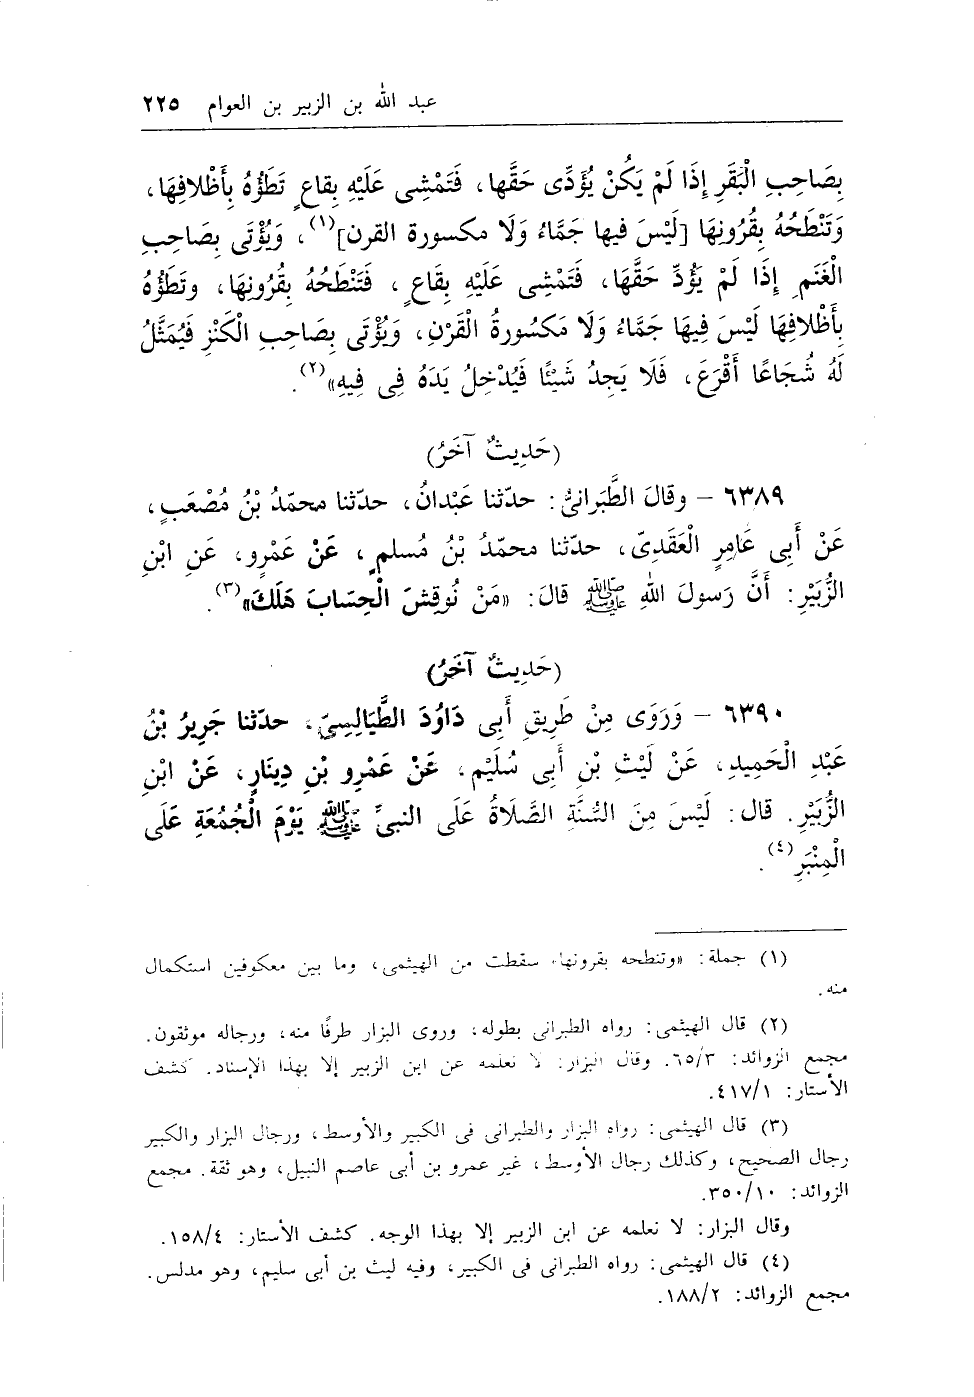 عبد الله بن الزبير بن العوام ٢٢٥
بِصَاحِبِ الْبَقَرِ إِذَا لَمْ يَكُنْ يُؤَدِّى حَقَّها، فَتَمْشِى عَلَيْهِ بِقاعٍ تَطَؤُهُ بِأَظْلافِهَا،
وَتَنْطَحُهُ بِقُرُونِهَا [لَيْسَ فيها جَمَّاءُ وَلَا مكسورة القرن](١)، وَيُؤْتَى بِصَاحِبِ
الْغَنَمِ إِذَا لَمْ يَؤُدِّ حَقَّهَا، فَتَمْشِى عَلَيْهِ بِقَاعٍ، فَتَنْطَحُهُ بِقُرُونِهَا، وتَطَؤُهُ
بِأَظْلافِهَا لَيْسَ فِيهَا جَمَّاءُ وَلَا مَكسُورةُ الْقَرْنِ، وَيُؤْتَى بِصَاحِبِ الْكَنْزِ فَيُمَثَّلُ
لَهُ شُجَاعًا أَقْرَعَ، فَلَا يَجِدُ شَيْئًا فَيُدْخِلُ يَدَهُ فِى فِيهِ»(٢).
(حَدِيثٌ آخَرُ)
٦٣٨٩ - وقالَ الطَّبَرانىُّ: حدّثنا عَبْدانُ، حدّثنا محمّدُ بْنُ مُصْعَبٍ،
عَنْ أَبِى عَامِرٍ الْعَقَدِىّ، حدّثنا محمّدُ بْنُ مُسلمٍ، عَنْ عَمْرٍو، عَنِ ابْنِ
الزُّبَيْرِ: أَنَّ رَسولَ اللهِ ﷺ قالَ: «مَنْ نُوقِشَ الْحِسَابَ هَلَكَ»(٣).
(حَدِيثٌ آخَرُ)
٦٣٩٠ - وَرَوَى مِنْ طَرِيقِ أَبِى دَاوُدَ الطَّيَالِسِىِّ، حدّثنا جَرِيرُ بْنُ
عَبْدِ الْحَمِيدِ، عَنْ لَيْثِ بْنِ أَبِى سُلَيْمٍ، عَنْ عَمْرِو بْنِ دِينَارٍ، عَنْ ابْنِ
الزُّبَيْرِ. قال: لَيْسَ مِنَ السُّنَّةِ الصَّلَاةُ عَلَى النبىِّ ﷺ يَوْمَ الْجُمُعَةِ عَلَى
الْمِنْبَرِ(٤).
(١) جملة: «وتنطحه بقرونها» سقطت من الهيثمى، وما بين معكوفين استكمال
منه.
(٢) قال الهيثمى: رواه الطبرانى بطوله، وروى البزار طرفًا منه، ورجاله موثقون.
مجمع الزوائد: ٦٥/٣. وقال البزار: لا نعلمه عن ابن الزبير إلا بهذا الإسناد. كشف
الأستار: ٤١٧/١.
(٣) قال الهيثمى: رواه البزار والطبرانى فى الكبير والأوسط، ورجال البزار والكبير
رجال الصحيح، وكذلك رجال الأوسط، غير عمرو بن أبى عاصم النبيل، وهو ثقة. مجمع
الزوائد: ٣٥٠/١٠.
وقال البزار: لا نعلمه عن ابن الزبير إلا بهذا الوجه. كشف الأستار: ١٥٨/٤.
(٤) قال الهيثمى: رواه الطبرانى فى الكبير، وفيه ليث بن أبى سليم، وهو مدلس.
مجمع الزوائد: ١٨٨/٢.